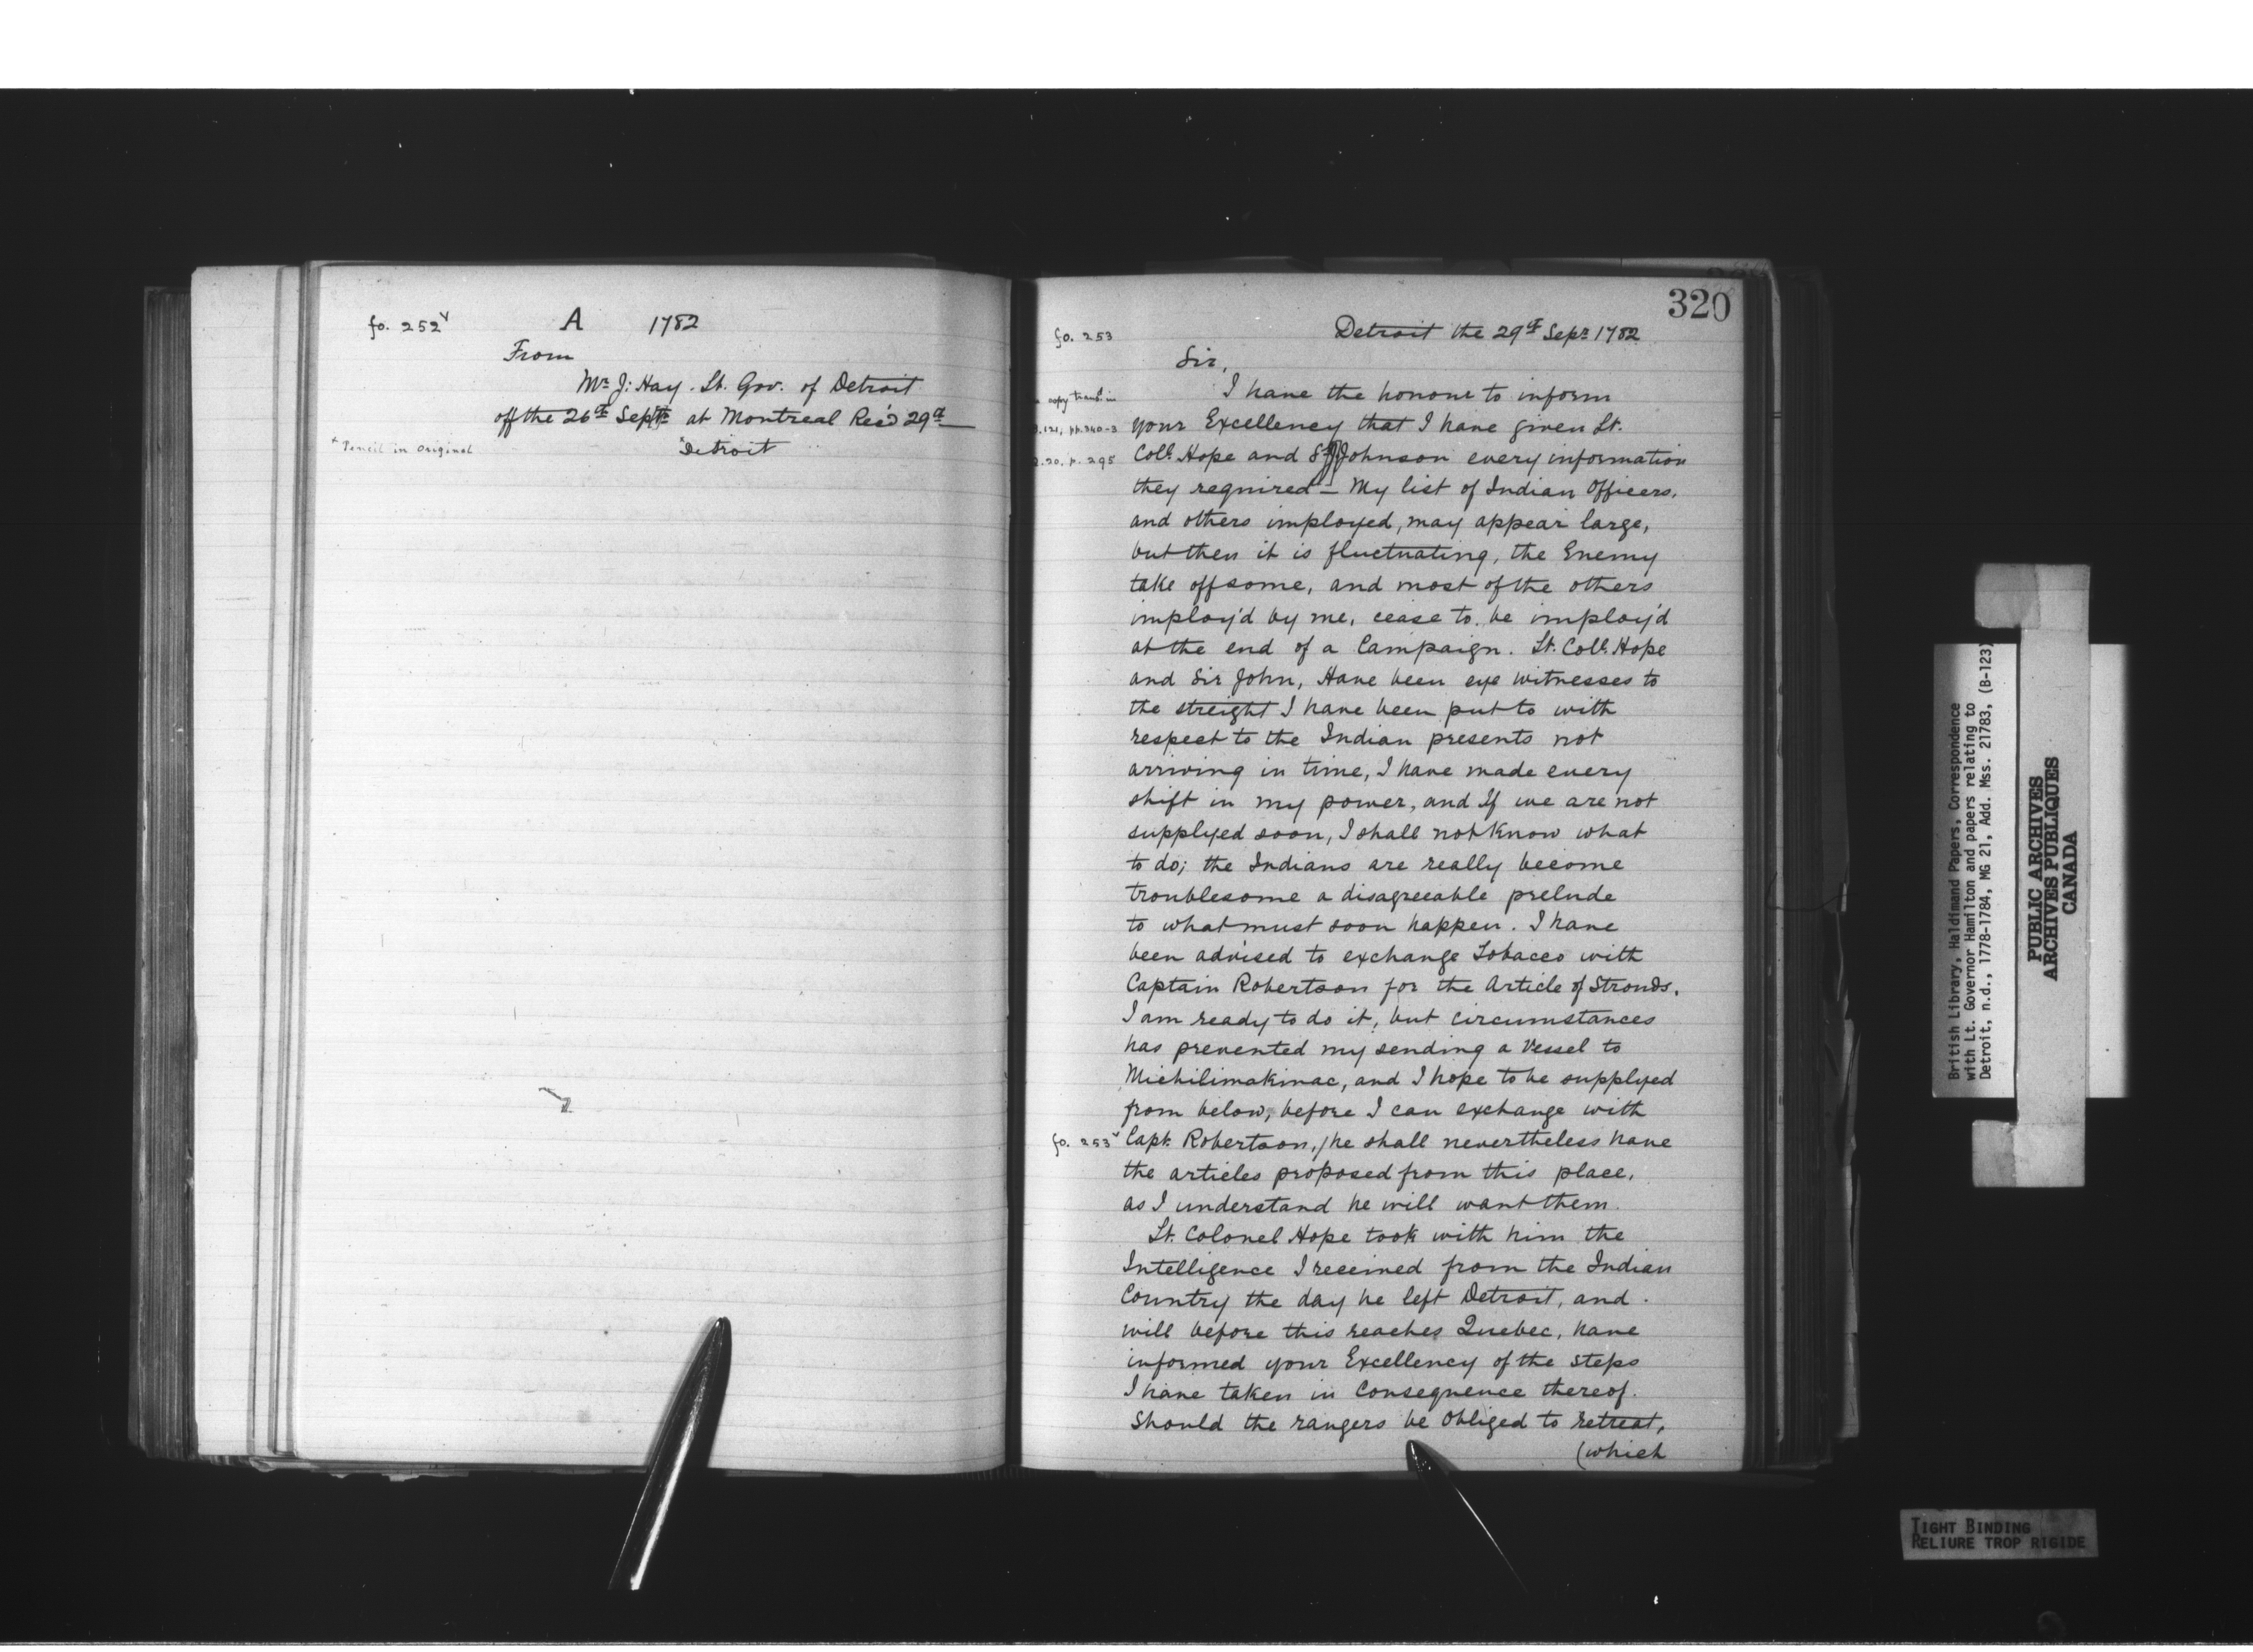 fo. 252v
A 1782
From
Mr J: Hay. Lt. Gov. of Detroit
off the 26th Septr at Montreal Rec'd 29th
x Pencil in Original
xDetroit
320
fo. 253
Detroit the 29th Sepr 1782
Sir,
I have the honour to inform
copy transd in
your Excellency that I have given Lt.
B.121, pp.240-3
Coll. Hope and Sr J Johnson every information
Q.20, p. 295
they required – My list of Indian Officers,
and others imployed, may appear large,
but then it is fluctuating, the Enemy
take off some, and most of the others
imploy'd by me, cease to be imploy'd
at the end of a Campaign. Lt. Coll. Hope
and Sir John, Have been eye witnesses to
the streight I have been put to with
respect to the Indian presents not
arriving in time, I have made every
shift in my power, and If we are not
supplyed soon, I shall not Know what
to do; the Indians are really become
troublesome a disagreeable prelude
to what must soon happen. I have
been advised to exchange Tobacco with
Captain Robertson for the Article of Strouds.
I am ready to do it, but circumstances
has prevented my sending a Vessel to
Michilimakinac, and I hope to be supplyed
from below, before I can exchange with
fo. 253v
Capt. Robertson,/he shall nevertheless have
the articles proposed from this place,
as I understand he will want them.
Lt. Colonel Hope took with him the
Intelligence I received from the Indian
Country the day he left Detroit, and
will before this reaches Quebec, have
informed your Excellency of the steps
I have taken in Consequence thereof.
Should the rangers be Obliged to retreat,
(which
British Library, Haldimand Papers, Correspondence
with Lt. Governor Hamilton and papers relating to
Detroit, n.d., 1778-1784, MG 21, Add. Mss. 21783, (B-123)
PUBLIC ARCHIVES
ARCHIVES PUBLIQUES
CANADA
TIGHT BINDING
RELIURE TROP RIGIDE